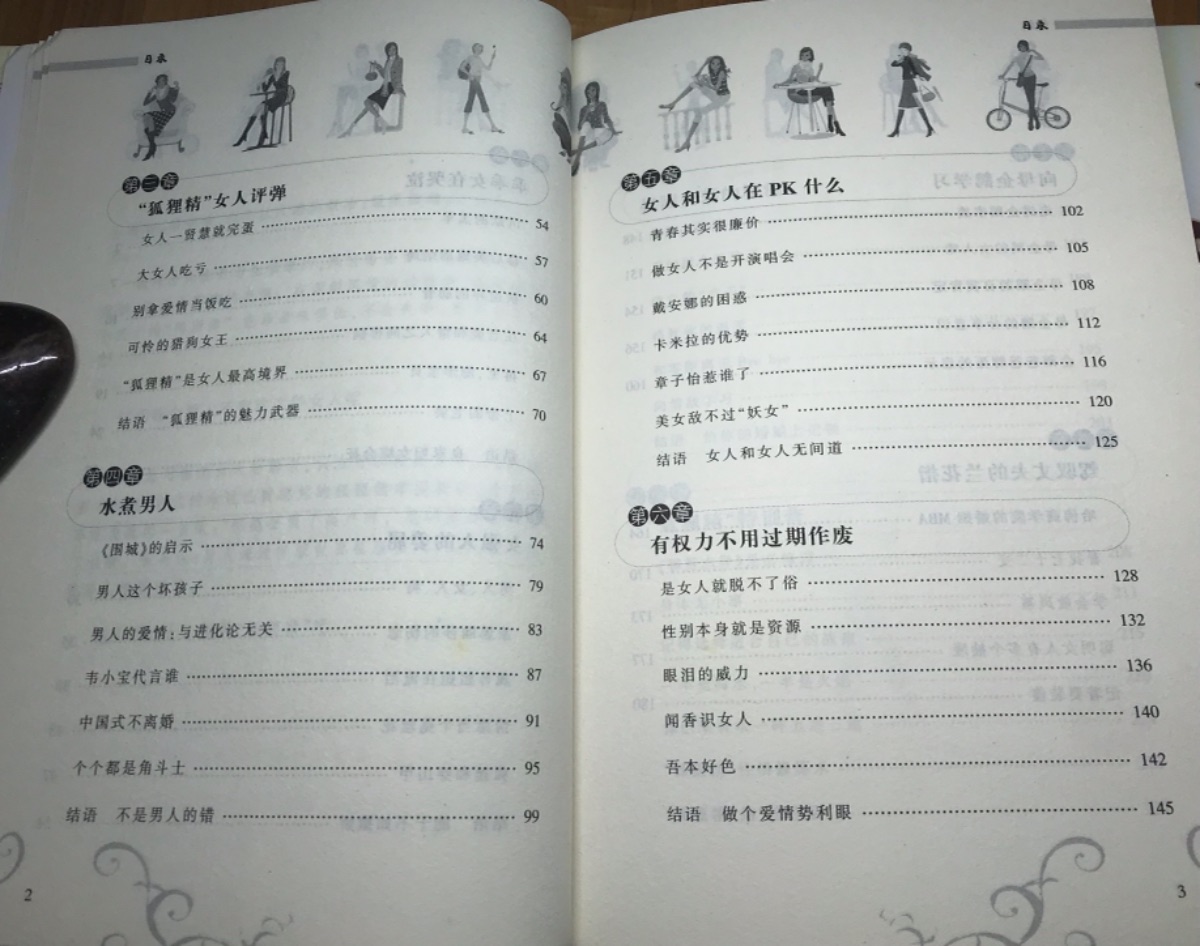 目录
第三章
“狐狸精”女人评弹
女人一贤慧就完蛋 54
大女人吃亏 57
别拿爱情当饭吃 60
可怜的猎狗女王 64
“狐狸精”是女人最高境界 67
结语 “狐狸精”的魅力武器 70
第四章
水煮男人
《围城》的启示 74
男人这个坏孩子 79
男人的爱情：与进化论无关 83
韦小宝代言谁 87
中国式不离婚 91
个个都是角斗士 95
结语 不是男人的错 99
2
目录
第五章
女人和女人在 PK 什么
青春其实很廉价 102
做女人不是开演唱会 105
戴安娜的困惑 108
卡米拉的优势 112
章子怡惹谁了 116
美女敌不过“妖女” 120
结语 女人和女人无间道 125
第六章
有权力不用过期作废
是女人就脱不了俗 128
性别本身就是资源 132
眼泪的威力 136
闻香识女人 140
吾本好色 142
结语 做个爱情势利眼 145
3